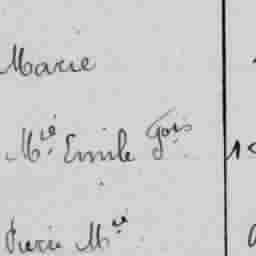 Marie
M.ie Emile Fois
Pierre M.ie